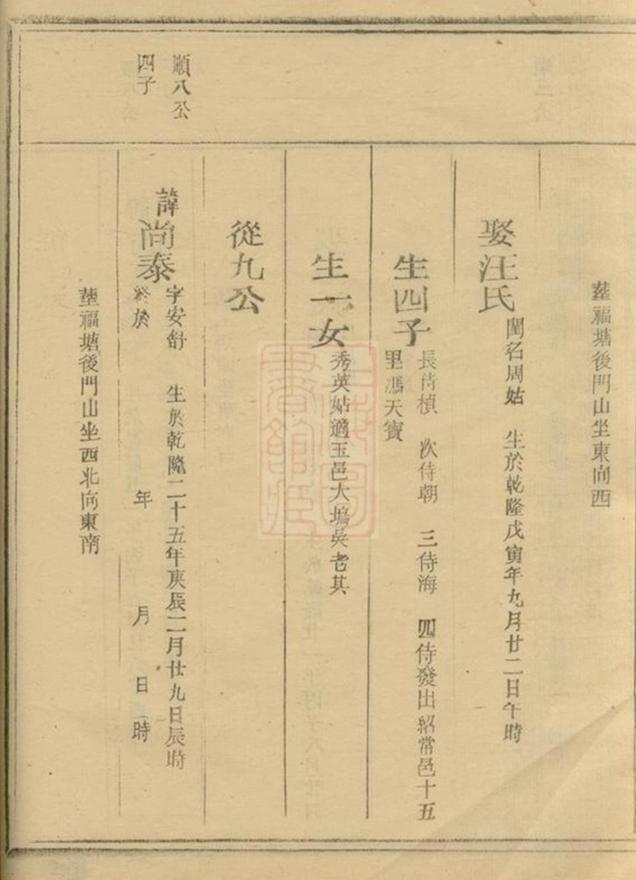 葬福塘後門山坐東向西
娶汪氏
閨名周姑 生於乾隆戊寅年九月廿二日午時
生四子
長侍楨 次侍朝 三侍海 四侍發出紹常邑十五
里馮天寶
生一女
秀英姑適玉邑大塢吳老其
從九公
順八公
四子
諱尚泰
字安舒 生於乾隆二十五年庚辰二月廿九日辰時
終於 年 月 日 時
葬福塘後門山坐西北向東南